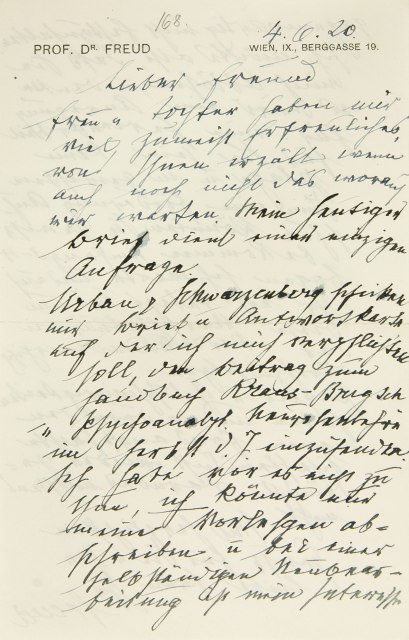 168.
4.6.20.
PROF. DR. FREUD
WIEN, IX., BERGGASSE 19.
Lieber Freund
Frau u Tochter haben mir
viel zumeist Erfreuliches
von Ihnen erzält wenn
auch noch nicht das worauf
wir warten. Mein heutiger
Brief dient einer einzigen
Anfrage.
Urban & Schwarzenberg schicken
mir Brief u Antwortkarte
auf der ich mich verpflichten
soll, den Beitrag zum
Handbuch Kraus-Brugsch
„Psychoanalyt. Neurosenlehre"
im Herbst d. J. einzusenden.
Ich habe vor es nicht zu
thun, ich könnte nur
meine Vorlesgen ab-
schreiben u bei einer
selbständigen Neubear-
beitung ist mein Interesse